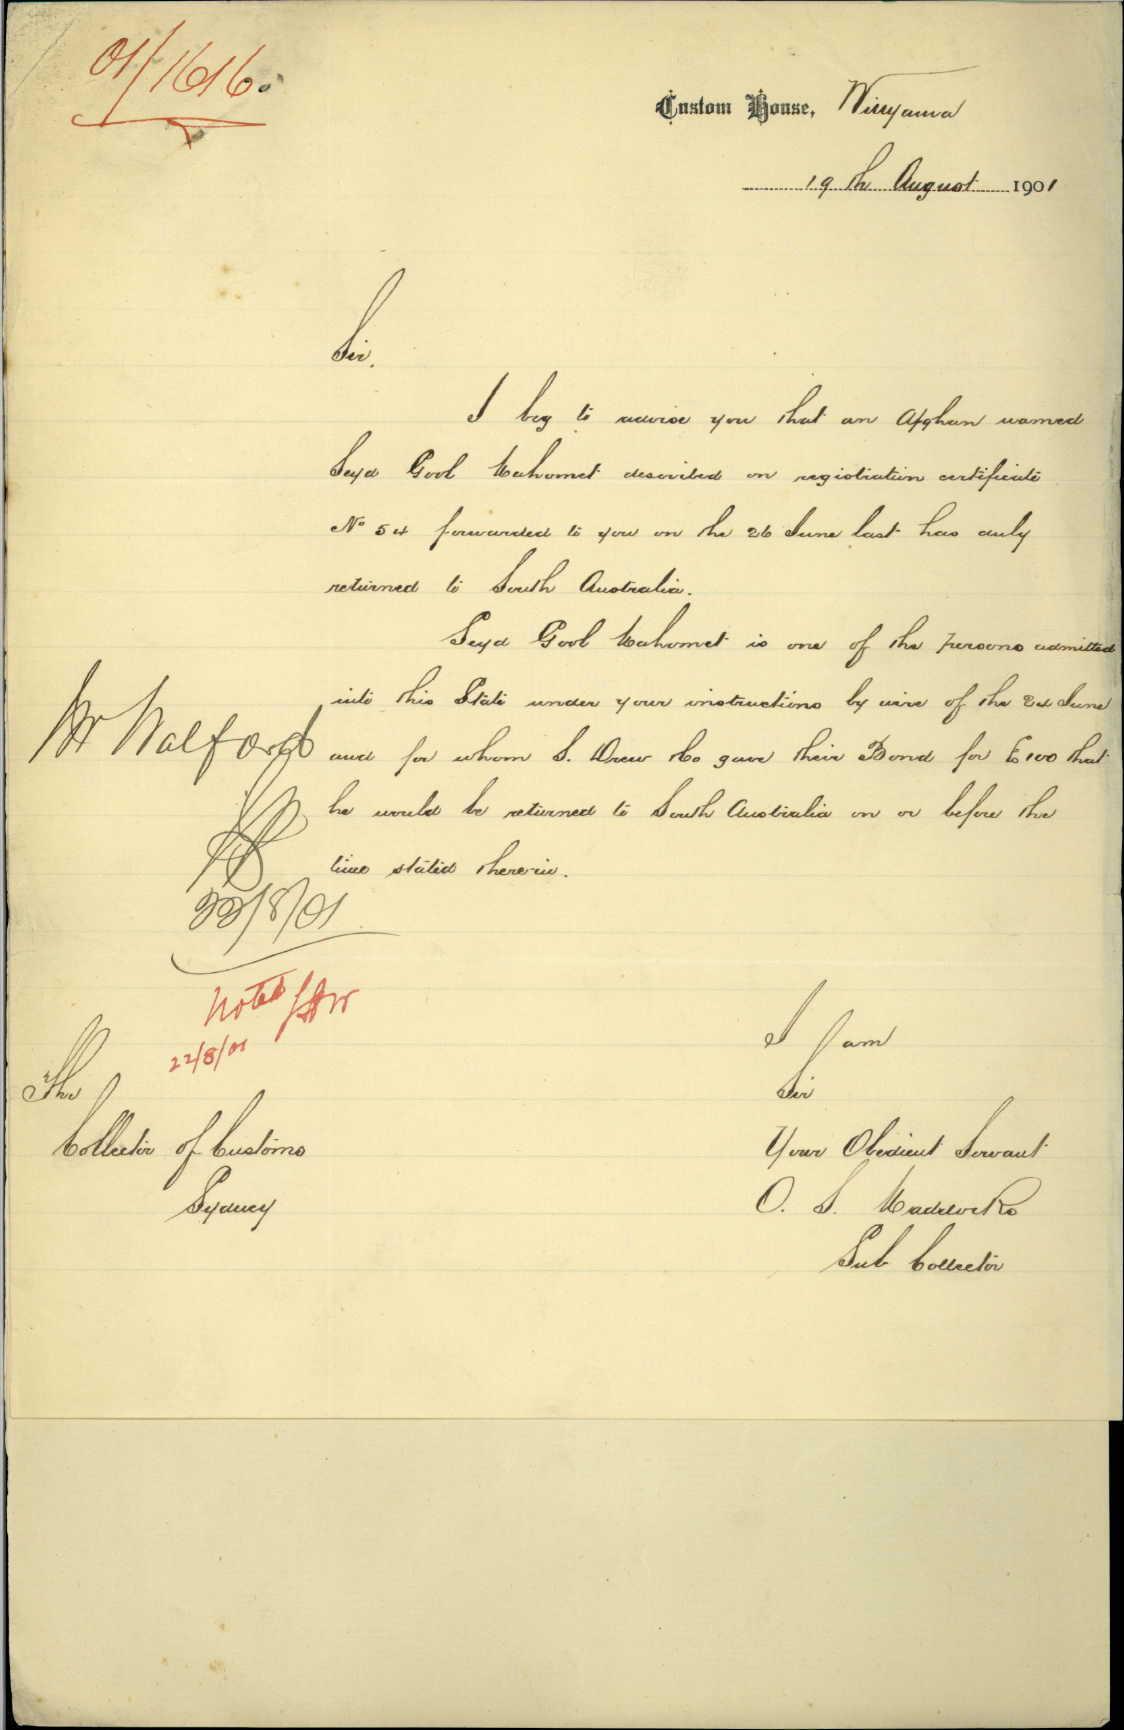 01/1616.
Custom House, Willyama
19th August 1901
Sir,
I beg to advise you that an Afghan named
Seyd Gool Mahomet described on registration certificate
No 54 forwarded to you on the 26 June last has duly
returned to South Australia.
Seyd Gool Mahomet is one of the persons admitted
into this State under your instructions by wire of the 24 June
and for whom S. Drew & Co gave their Bond for £100 that
he would be returned to South Australia on or before the
time stated therein.
Mr Walford
22/8/01
Noted
22/8/01
I am
Sir
Your Obedient Servant
O. S. Maddocks
Sub Collector
The
Collector of Customs
Sydney